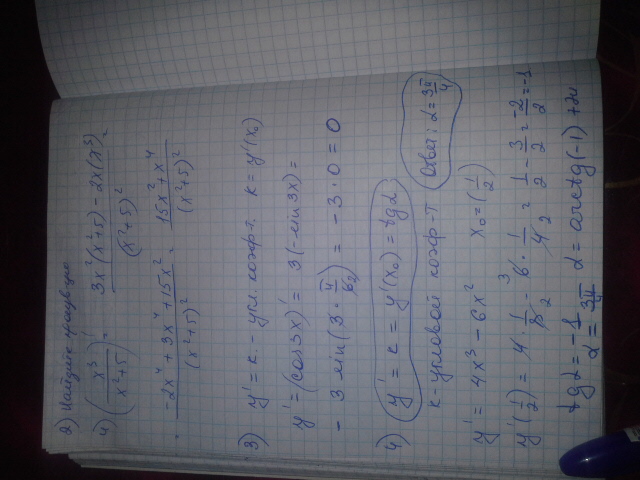 2) Найдите производную
4) (x³/(x²+5))' = (3x²(x²+5) - 2x(x³))/(x²+5)²
= (-2x⁴ + 3x⁴ + 15x²)/(x²+5)² = (15x² + x⁴)/(x²+5)²
3) y' = к - угл. коэф-т. к = y'(x₀)
y' = (cos 3x)' = 3(-sin 3x) =
- 3 sin(3 · π/6₂) = -3 · 0 = 0
4) y' = к = y'(x₀) = tg α
к - угловой коэф-т Ответ: α = 3π/4
y' = 4x³ - 6x² x₀ = (1/2)
y'(1/2) = 4 · 1/8₂ - 6³ · 1/4₂ = 1/2 - 3/2 = -2/2 = -1
tg α = -1 α = arctg(-1) + πn
α = 3π/4